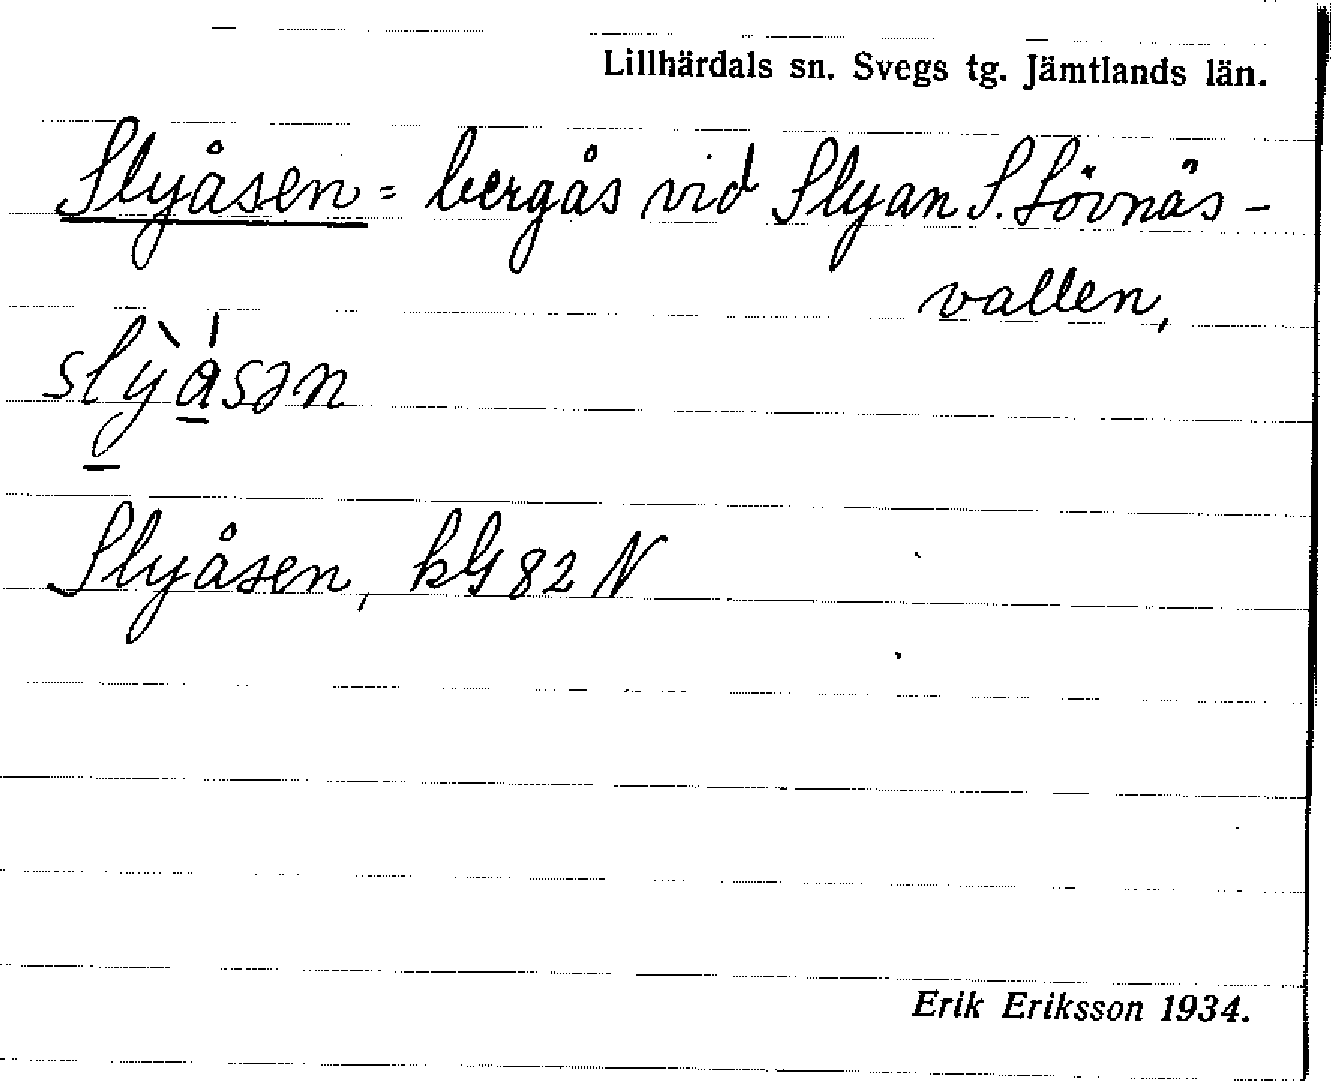 Lillhärdals sn. Svegs tg. Jämtlands län.
Slyåsen = bergås vid Slyan S. Lövnäs-
vallen,
slỳásən
Slyåsen, kG 82 N
Erik Eriksson 1934.